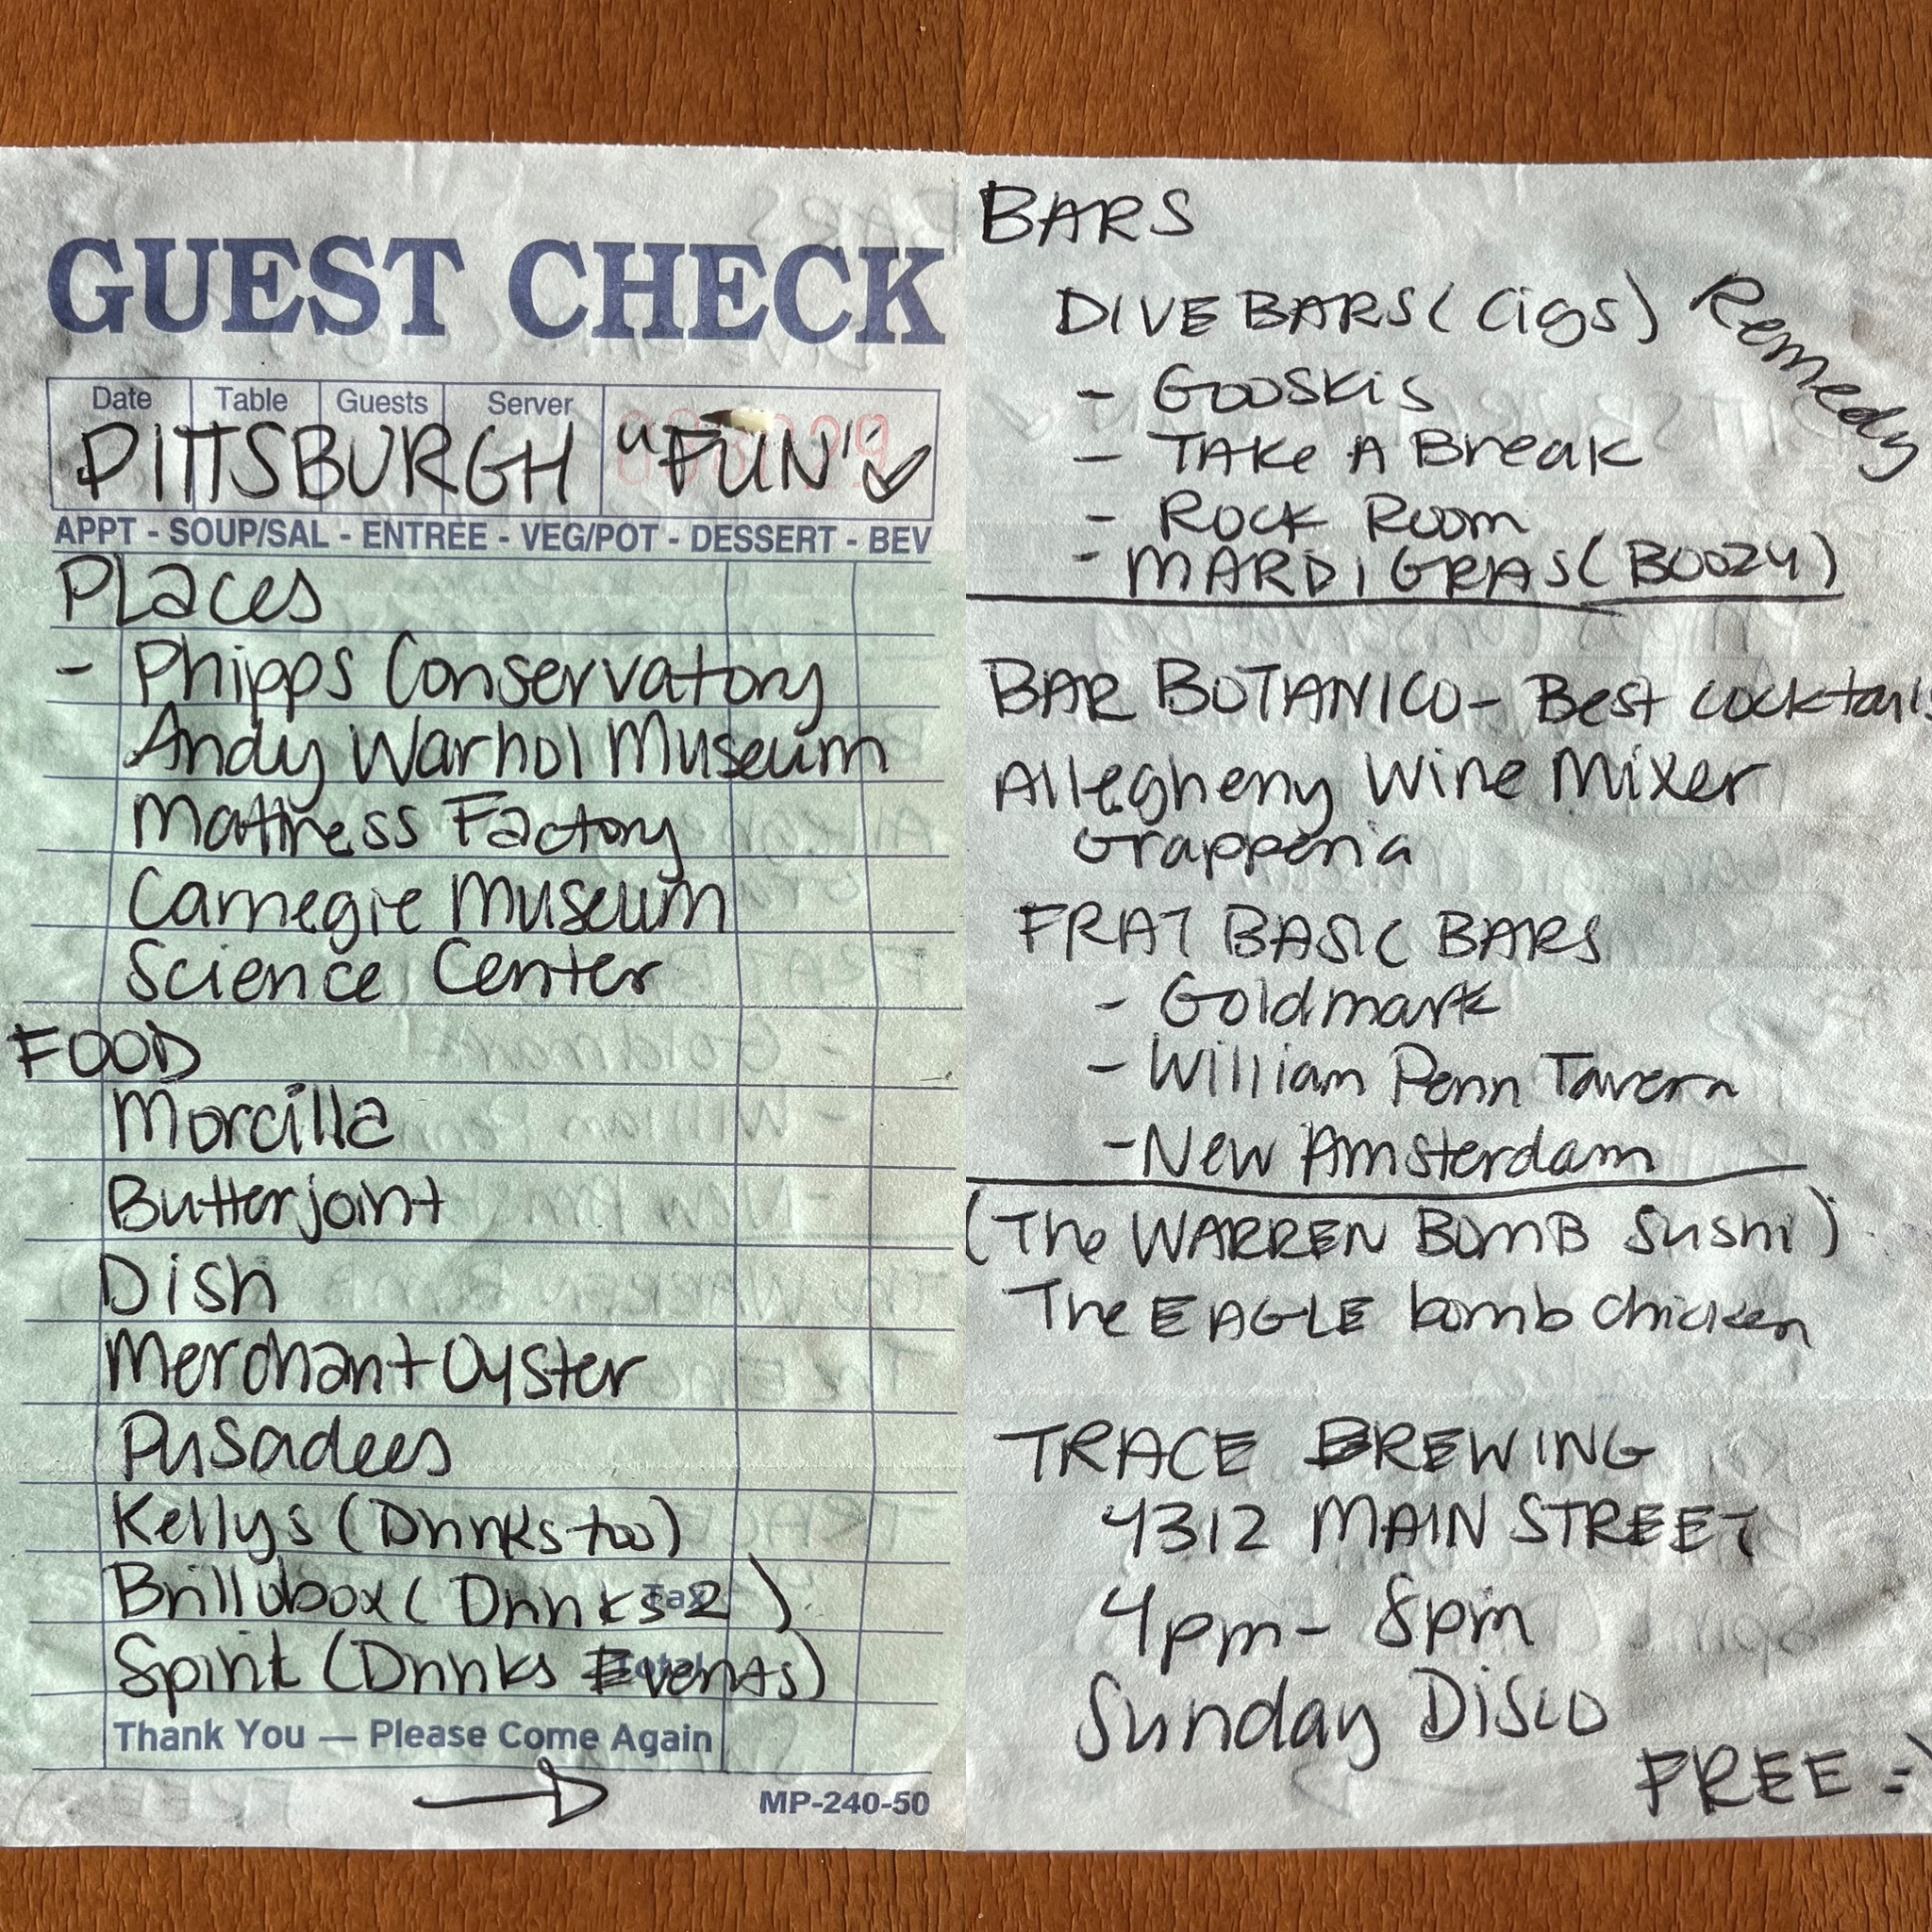 GUEST CHECK
Date Table Guests Server
PITTSBURGH "FUN"
APPT - SOUP/SAL - ENTREE - VEG/POT - DESSERT - BEV
Places
- Phipps Conservatory
Andy Warhol Museum
Mattress Factory
Carnegie Museum
Science Center
FOOD
Morcilla
Butterjoint
Dish
Merchant Oyster
Pusadees
Kellys (Drinks too)
Brillobox (Drinks 2)
Tax
Spirit (Drinks Events)
Total
Thank You — Please Come Again
MP-240-50
BARS
DIVE BARS (Cigs) Remedy
- Gooskis
- TAKe A Break
- ROCK ROOM
- MARDI GRAS (BOOZY)
BAR BOTANICO - Best cocktails
Allegheny Wine Mixer
Grapperia
FRAT BASIC BARS
- Goldmark
- William Penn Tavern
- New Amsterdam
(The WARREN BOMB Sushi)
The EAGLE bomb chicken
TRACE BREWING
4312 MAIN STREET
4pm - 8pm
Sunday Disco
FREE =)